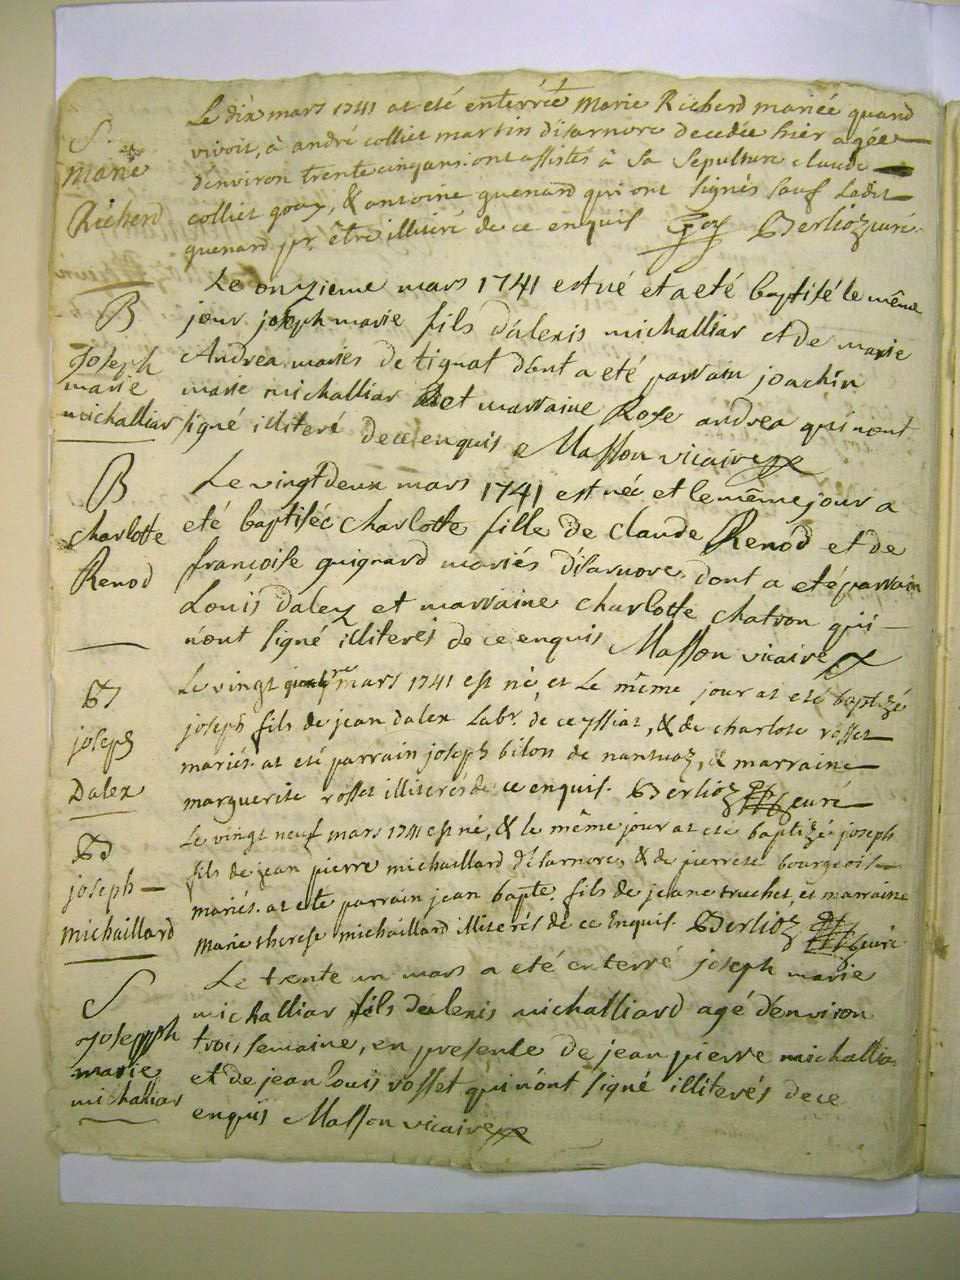 S.
marie
Richerd
Le dix mars 1741 at eté enterreé Marie Richerd mariée quand
vivoit, à andré colliet martin d'isarnore decedée hier agée
d'environ trente cinq ans. ont assistés à sa sepulture claude
colliet goy, & antoine guenard qui ont signés sauf ledit
guenard pr. être illitéré de ce enquis Goy Berlioz curé.
B
Joseph
marie
michalliar
Le onzieme mars 1741 est né et a eté baptisé le même
jour joseph marie fils d'alexis michalliar et de marie
Andrea mariés de tignat dont a eté parrain joachin
marie michalliar et marraine Rose andrea qui n'ont
signé illiteré de ce enquis Masson vicaire
B
charlotte
Renod
Le vingt deux mars 1741 est née et le même jour a
eté baptisée charlotte fille de claude Renod et de
françoise guignard mariés d'isarnore. dont a eté parrain
Louis dalex et marraine charlotte chatron qui
n'ont signé illiterés de ce enquis Masson vicaire
B
joseph
Dalex
Le vingt mars 1741 est né, et Le même jour at eté baptizé
joseph fils de jean dalex Labr. de ceyssiat, & de charlote rosset
mariés. at eté parrain joseph bilon de nantuaz, & marraine
marguerite rosset illiterés de ce enquis. Berlioz curé
B
joseph
michaillard
Le vingt neuf mars 1741 est né, & le même jour at eté baptizé joseph
fils de jean pierre michaillard d'Isarnore, & de pierrete bourgeois
mariés. at eté parrain jean bapte. fils de jeane truchet, et marraine
Marie therese michaillard illiterés de ce Enquis. Berlioz curé
S
Joseph
marie
michaliar
Le trente un mars a eté enterré joseph marie
michalliar fils d'alexis michalliard agé d'environ
trois semaine, en presente de jean pierre michallia
et de jean Louis rosset qui n'ont signé illiterés de ce
enquis Masson vicaire